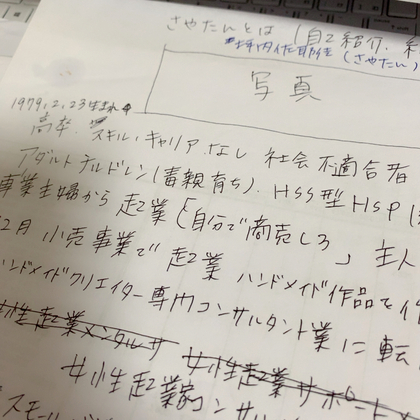 さやたんとは (自己紹介、
(さやたん)
写真
1979.2.23生まれ
高卒、スキル・キャリアなし 社会不適合者
アダルトチルドレン(毒親育ち)、HSS型HSP
事業主婦から起業「自分で商売しろ」主人
2月 小売事業で起業 ハンドメイド作品を
ハンドメイドクリエイター専門コンサルタント業に転
女性起業メンタルサ 女性起業サポート
女性起業家コンサル
スモール